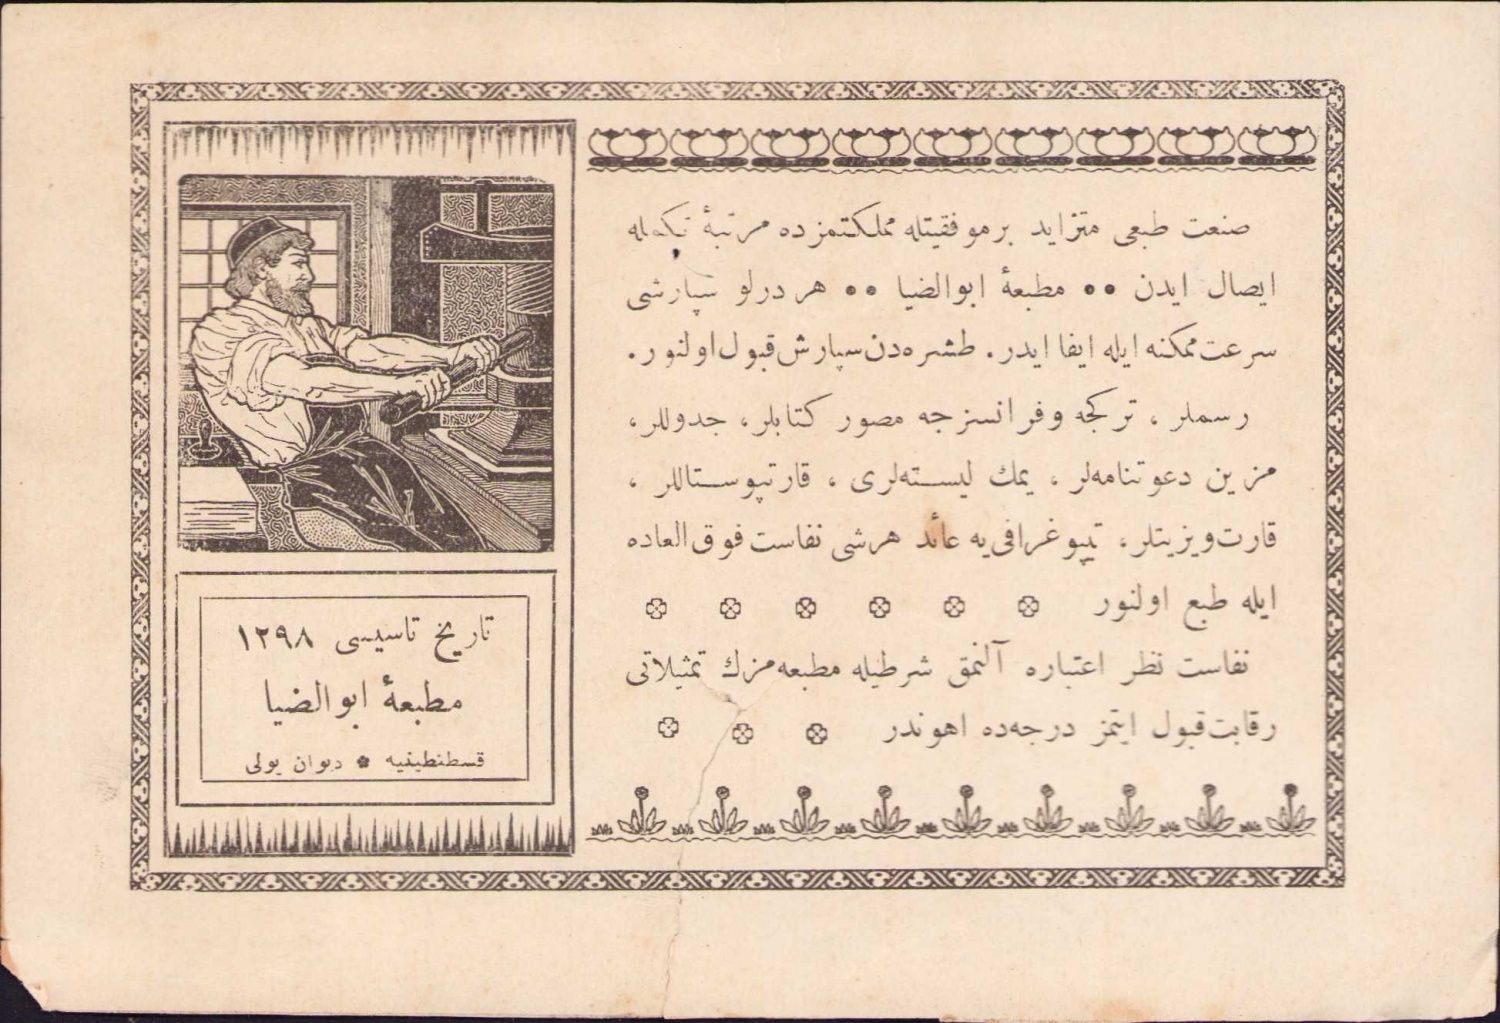 صنعت طبعی متزاید برموفقیتله مملکتمزده مرتبۀ تکمله
ایصال ایدن •• مطبعۀ ابوالضیا •• هر درلو سپارشی
سرعت ممکنه ایله ایفا ایدر. طشره‌دن سپارش قبول اولنور.
رسملر ، ترکجه وفرانسزجه مصور کتابلر، جدوللر،
مزین دعوتنامه‌لر ، یمك لیسته‌لری ، قارتپوستاللر ،
قارت‌ویزیتلر، تیپوغرافی‌یه عائد هرشی نفاست فوق العاده
ایله طبع اولنور
نفاست نظر اعتباره آلنمق شرطیله مطبعه‌مزك تمثیلاتی
رقابت قبول ایتمز درجه‌ده اهوندر
تاریخ تاسیسی ١٢٩٨
مطبعۀ ابوالضیا
قسطنطینیه * دیوان یولی